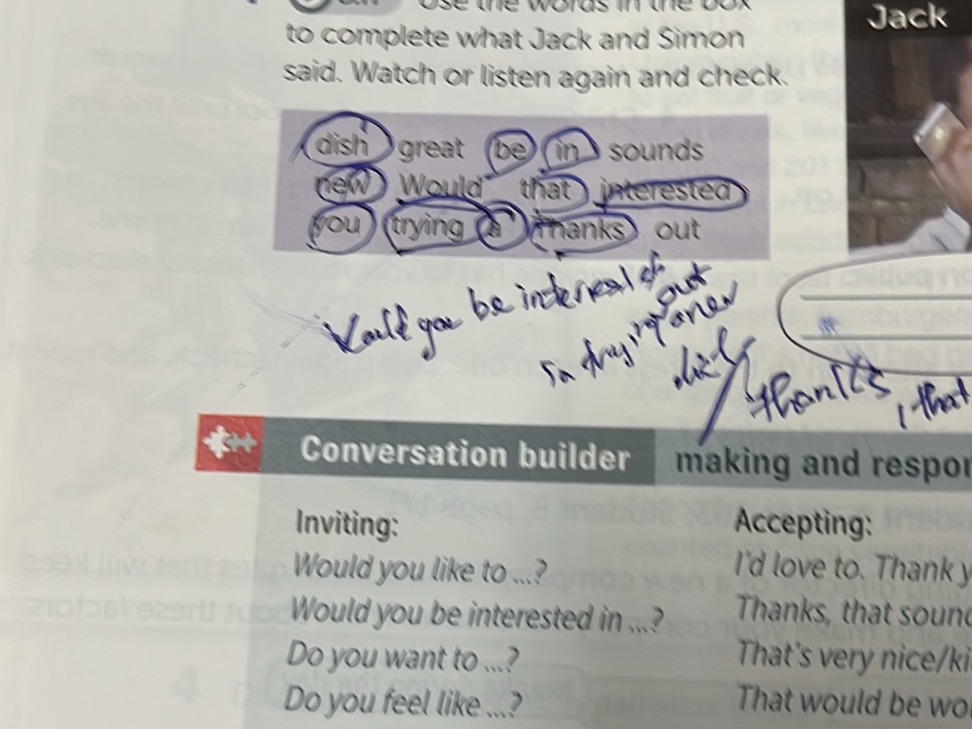 Use the words in the box
to complete what Jack and Simon
said. Watch or listen again and check.
Jack
dish great be in sounds
new Would that interested
you trying a thanks out
Would you be
out
thanks, that
Conversation builder making and respon
Inviting:
Would you like to ...?
Would you be interested in ...?
Do you want to ...?
Do you feel like ...?
Accepting:
I'd love to. Thank y
Thanks, that soun
That's very nice/ki
That would be wo